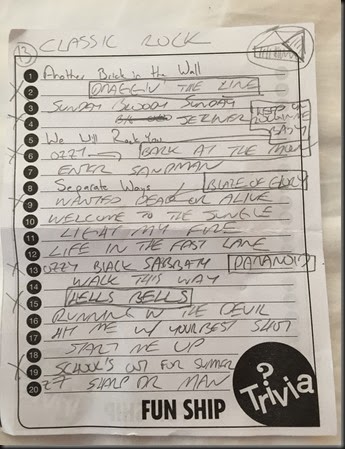 13 CLASSIC ROCK
1 Another Brick in the Wall
X 2 DRAGGIN' THE LINE
3 SUNDAY BLOODY SUNDAY
X 4 JERNEY KEEP ON RUNNING BABY
5 We Will Rock You
X 6 OZZY BARK AT THE MOON
7 ENTER SANDMAN
8 Separate Ways / BLAZE OF GLORY
X 9 WANTED DEAD OR ALIVE
10 WELCOME TO THE JUNGLE
11 LIGHT MY FIRE
12 LIFE IN THE FAST LANE
X 13 OZZY BLACK SABBATH PARANOID
14 WALK THIS WAY
X 15 HELLS BELLS
16 RUNNING W THE DEVIL
17 HIT ME W/ YOUR BEST SHOT
18 START ME UP
X 19 SCHOOL'S OUT FOR SUMMER
20 ZZ SHARP DR MAN
FUN SHIP
? Trivia